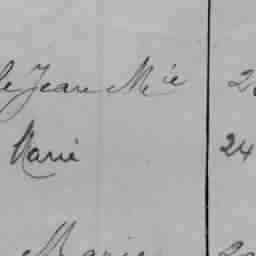 le Jean Mie
Marie 24
Marie